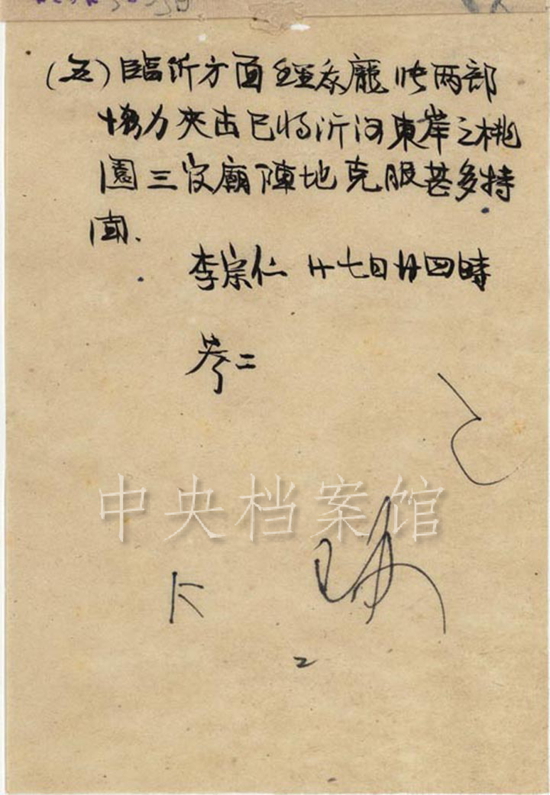 (五)臨沂方面經我龐张两部
協力夹击已将沂河東岸之桃
園三官廟陣地克服甚多特
聞.
李宗仁 廿七日廿四時
参二
中央档案馆